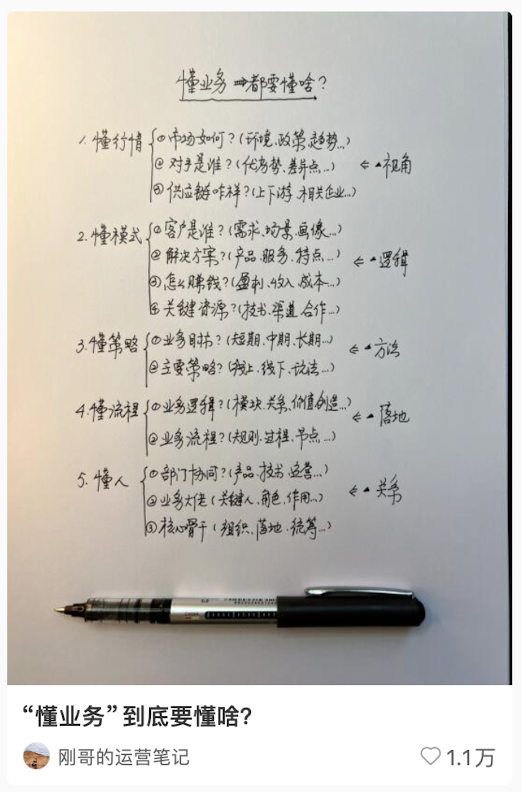 懂业务 ⇒ 都要懂啥?
1. 懂行情
① 市场如何?(环境、政策、趋势...)
② 对手是谁?(优劣势、差异点...)
③ 供应链咋样?(上下游、相关企业...)
⇐ 视角
2. 懂模式
① 客户是谁?(需求、场景、画像...)
② 解决方案?(产品、服务、特点...)
③ 怎么赚钱?(盈利、收入、成本...)
④ 关键资源?(技术、渠道、合作...)
⇐ 逻辑
3. 懂策略
① 业务目标?(短期、中期、长期...)
② 主要策略?(线上、线下、玩法...)
⇐ 方法
4. 懂流程
① 业务逻辑?(模块、关系、价值创造...)
② 业务流程?(规则、过程、节点...)
⇐ 落地
5. 懂人
① 部门协同?(产品、技术、运营...)
② 业务大佬(关键人、角色、作用...)
③ 核心骨干(组织、落地、统筹...)
⇐ 关系
“懂业务”到底要懂啥?
刚哥的运营笔记
1.1万